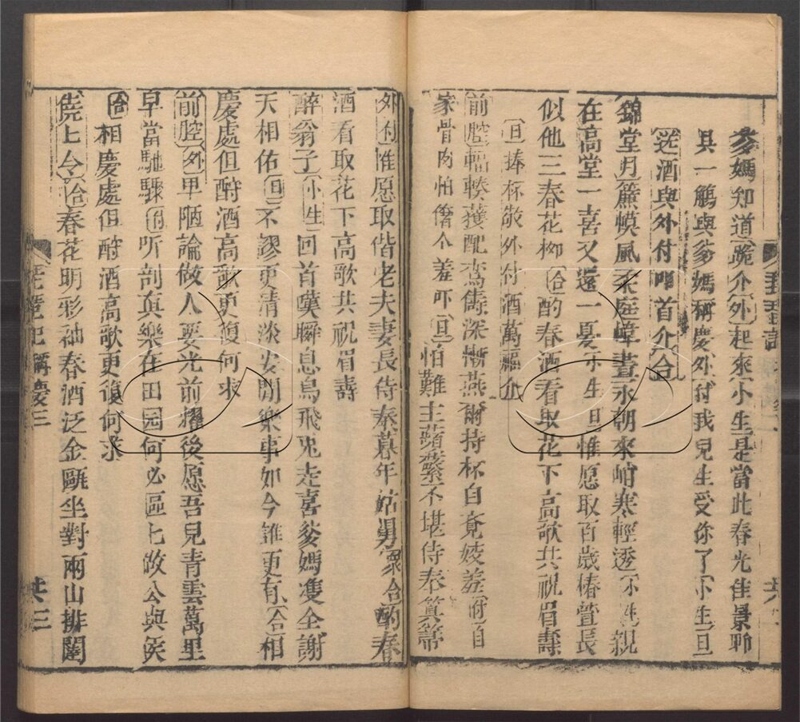 爹媽知道跪介外起來小生是當此春光佳景聊
具一觴與爹媽稱慶外付我兒生受你了小生旦
送酒與外付叩首介合
錦堂月簾幙風柔庭幃晝永朝來峭寒輕透小生親
在高堂一喜又還一憂小生旦惟愿取百歲椿萱長
似他三春花柳合酌春酒看取花下高歌共祝眉壽
旦捧杯敬外付酒萬福介
前腔輻輳獲配鸞儔深慚燕爾持杯自竟姣羞付自
家骨肉怕儈介羞吓旦怕難主蘋蘩不堪侍奉箕箒
外付惟愿取偕老夫妻長侍奉暮年姑舅眾合酌春
酒看取花下高歌共祝眉壽
醉翁子小生回首嘆瞬息烏飛兎走喜爹媽雙全謝
天相佑旦不謬更清淡安閒樂事如今誰更有合相
慶處但酌酒高歌更復何求
前腔外卑陋論做人要光前耀後愿吾兒青雲萬里
早當馳驟付听剖真樂在田园何必區匕做公與侯
合相慶處但酌酒高歌更復何求
僥上令合春花明彩袖春酒泛金甌坐對兩山排闥
琵琶記
琵琶記稱慶三
共三